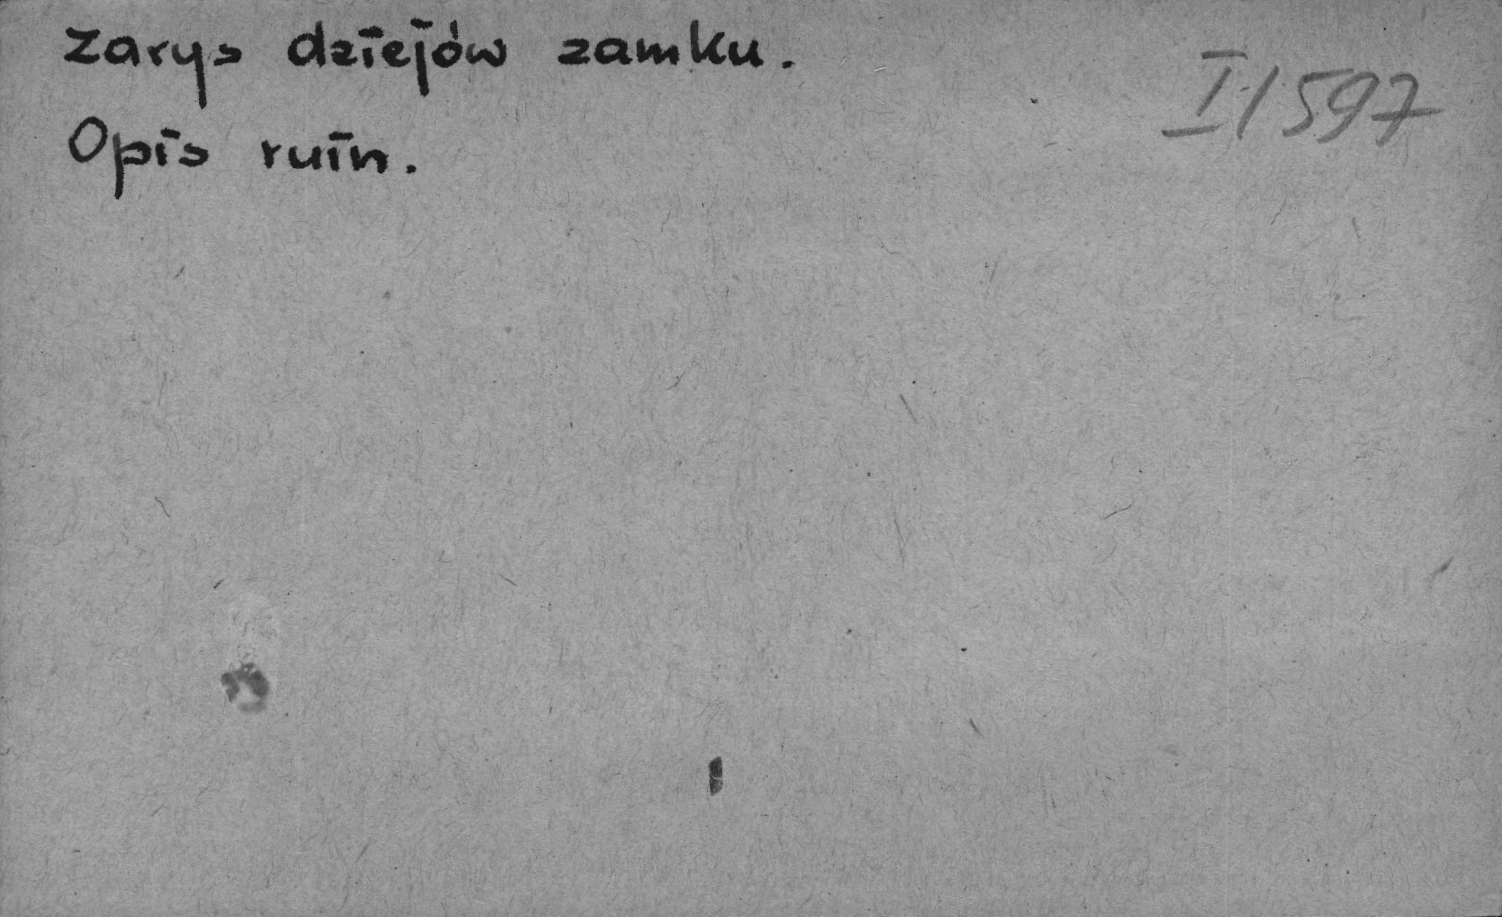 Zarys dziejów zamku.
I/1597
Opis ruin.